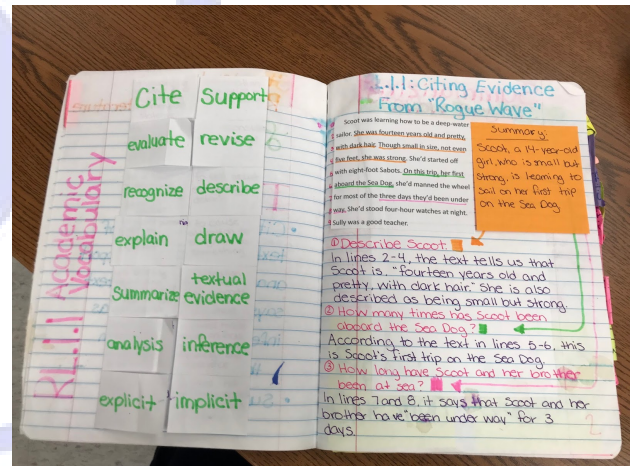 RL.1.1 Academic
Vocabulary
Cite Support
evaluate revise
recognize describe
explain draw
summarize textual evidence
analysis inference
explicit implicit
L.1.1: Citing Evidence
From "Rogue Wave"
Scoot was learning how to be a deep-water
sailor. She was fourteen years old and pretty,
with dark hair. Though small in size, not even
five feet, she was strong. She'd started off
with eight-foot Sabots. On this trip, her first
aboard the Sea Dog, she'd manned the wheel
for most of the three days they'd been under
way. She'd stood four-hour watches at night.
Sully was a good teacher.
Summary:
Scoot, a 14-year-old
girl, who is small but
strong, is learning to
sail on her first trip
on the Sea Dog
① Describe Scoot.
In lines 2-4, the text tells us that
Scoot is, "fourteen years old and
pretty, with dark hair." She is also
described as being small but strong.
② How many times has Scoot been
aboard the Sea Dog?
According to the text in lines 5-6, this
is Scoot's first trip on the Sea Dog.
③ How long have Scoot and her brother
been at sea?
In lines 7 and 8, it says that Scoot and her
brother have "been under way" for 3
days.